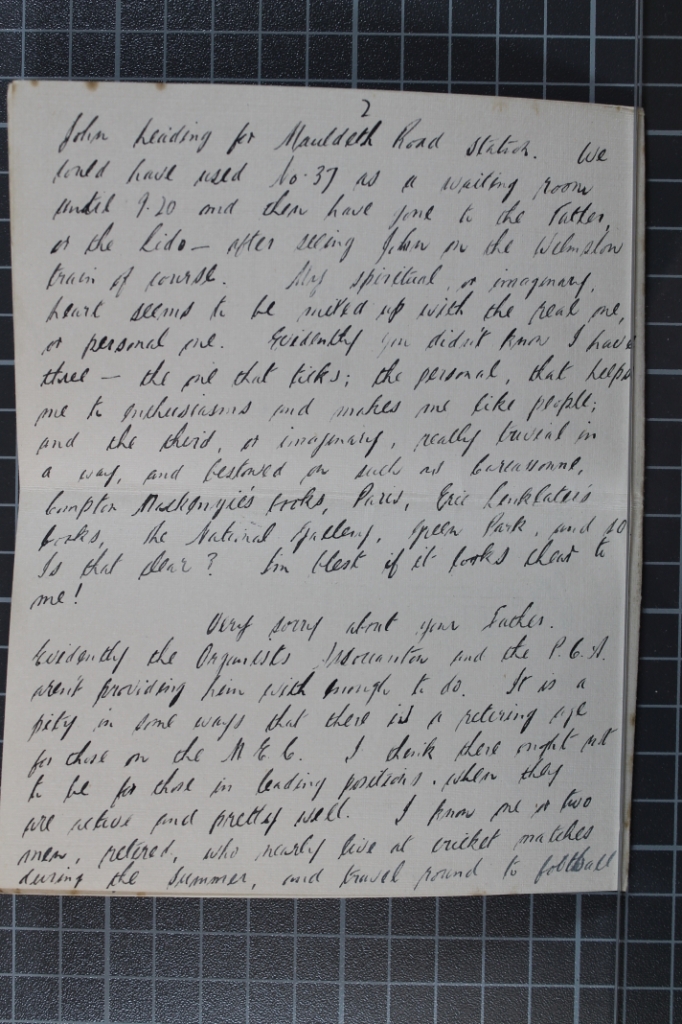 2
John heading for Mauldeth Road station. We
could have used No. 37 as a waiting room
until 9.20 and then have gone to the Father,
or the Lido — after seeing John on the Wilmslow
train of course. My spiritual, or imaginary,
heart seems to be mixed up with the real one,
or personal one. Evidently you didn't know I have
three — the one that ticks; the personal, that helps
me to enthusiasms and makes me like people;
and the third, or imaginary, really trivial in
a way, and bestowed on such as Carcassonne,
Compton Mackenzie's books, Paris, Eric Linklater's
books, the National Gallery, Green Park, and so
Is that clear? I'm blest if it looks clear to
me!
Very sorry about your Father.
Evidently the Organists Association and the P.C.A.
aren't providing him with enough to do. It is a
pity in some ways that there is a retiring age
for those on the M E C. I think there ought not
to be for those in leading positions, when they
are active and pretty well. I know one or two
men, retired, who nearly live at cricket matches
during the summer, and travel round to football